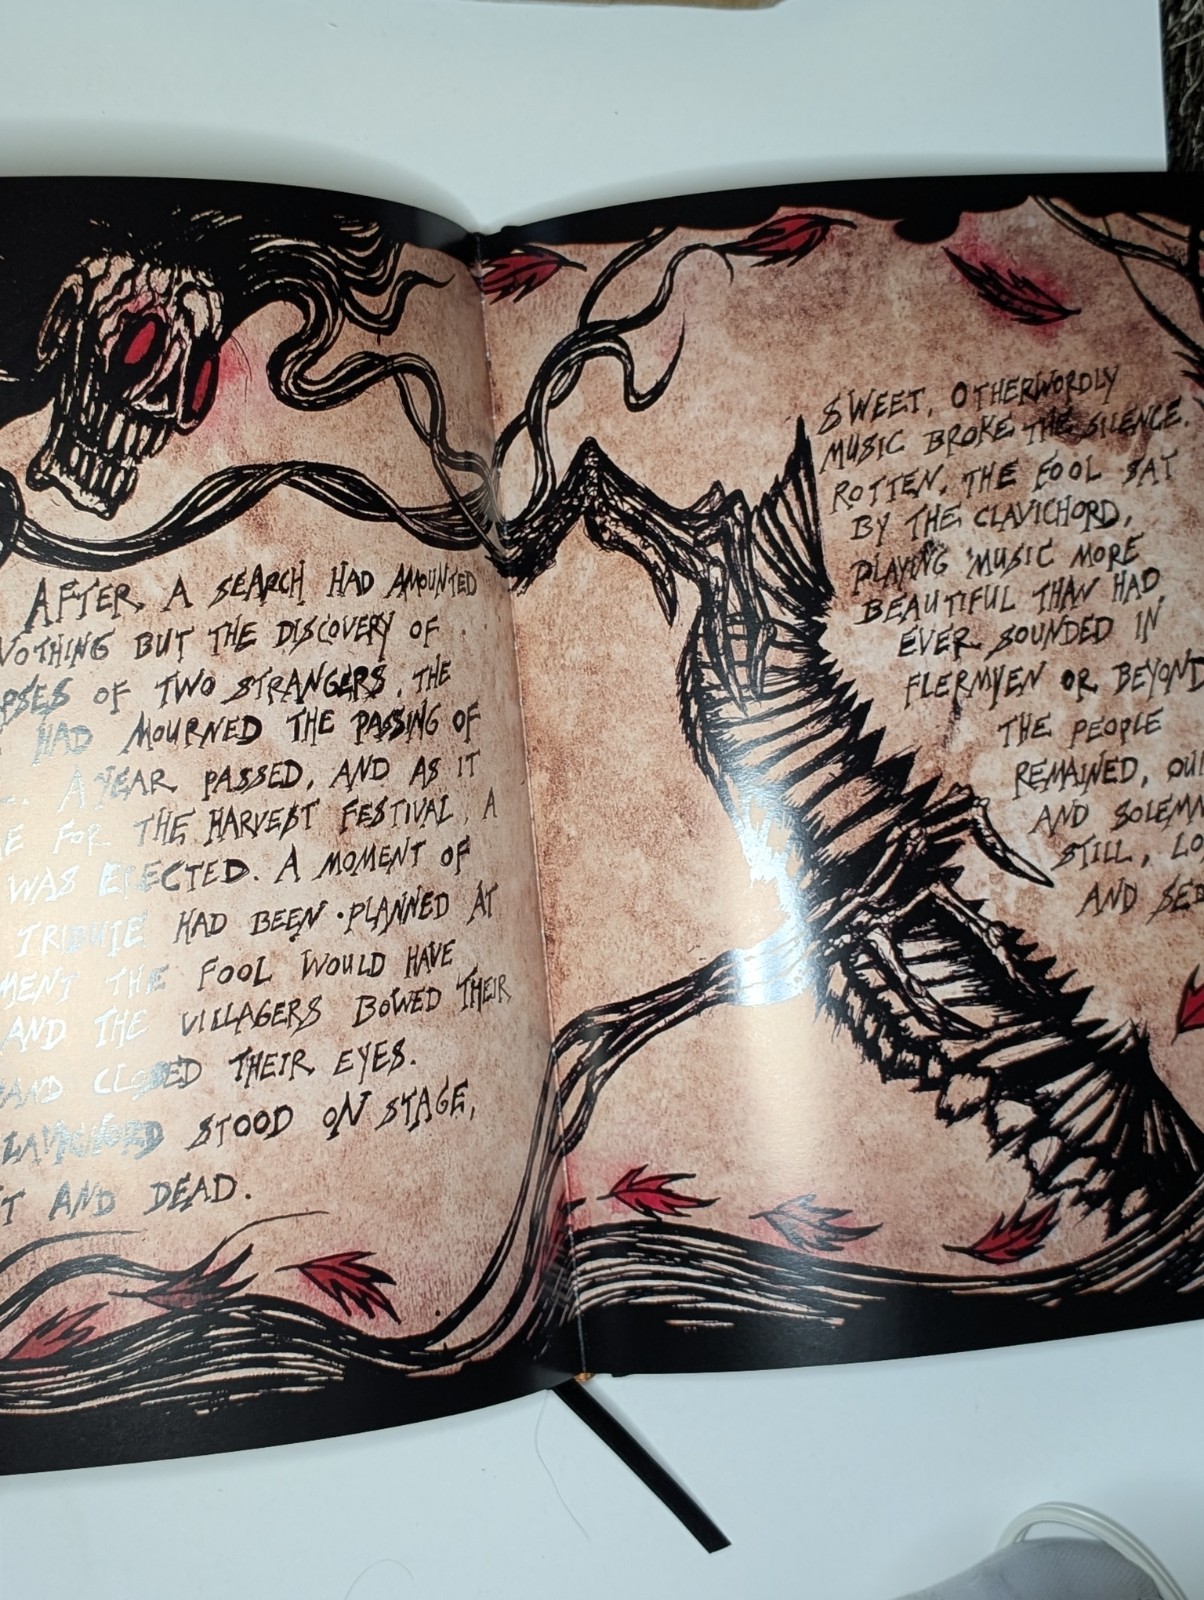 AFTER A SEARCH HAD AMOUNTED
NOTHING BUT THE DISCOVERY OF
PSES OF TWO STRANGERS, THE
HAD MOURNED THE PASSING OF
A YEAR PASSED, AND AS IT
E FOR THE HARVEST FESTIVAL, A
WAS ERECTED. A MOMENT OF
TRIBUTE HAD BEEN PLANNED AT
MENT THE FOOL WOULD HAVE
AND THE VILLAGERS BOWED THEIR
AND CLOSED THEIR EYES.
LAVICHORD STOOD ON STAGE,
T AND DEAD.
SWEET, OTHERWORDLY
MUSIC BROKE THE SILENCE.
ROTTEN, THE FOOL SAT
BY THE CLAVICHORD,
PLAYING MUSIC MORE
BEAUTIFUL THAN HAD
EVER SOUNDED IN
FLERMYEN OR BEYOND
THE PEOPLE
REMAINED, QUI
AND SOLEMN
STILL, LO
AND SED